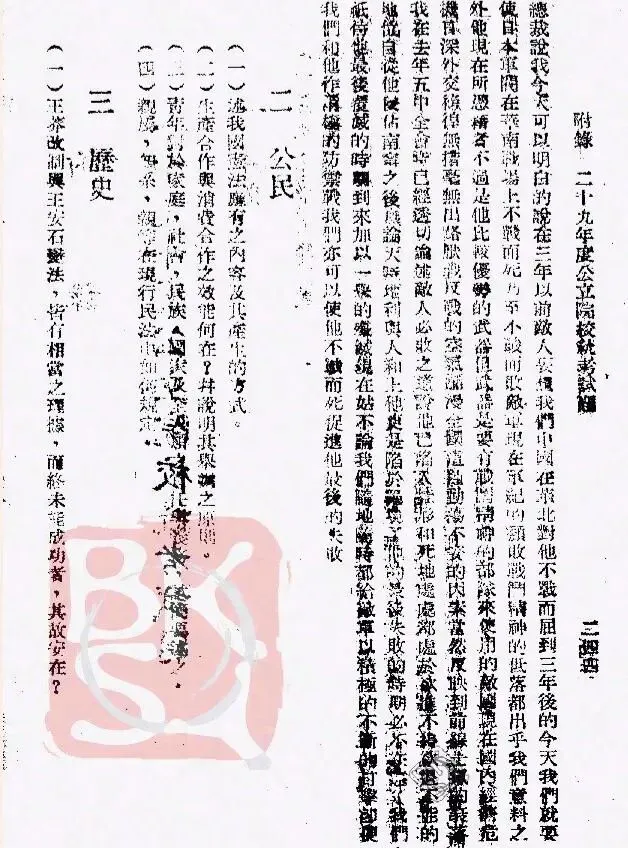 附錄　二十九年度公立院校統考試題
總裁說我今天可以明白的說在三年以前敵人妄想我們中國在華北對他不戰而屈到三年後的今天我們就要
使日本軍閥在華南戰場上不戰而死乃至不戰而敗敵軍現在軍紀的頹敗戰鬥精神的低落都出乎我們意料之
外他現在所憑藉者不過是他比較優勢的武器但武器是要有戰鬥精神的部隊來使用的敵國現在國內經濟危
機日深外交徬徨無措毫無出路厭戰反戰的空氣瀰漫全國這種動蕩不安的因素當然反映到前線士
我在去年五中全會時已經透切論述敵人必敗之道說他已陷入 形和死地處處都處於欲進不 欲退不能的
地位自從他侵佔南甯之後無論天時地利與人和上他更是陷於 他的最後失敗的時期必不在 我們
祇待他最後覆滅的時機到來加以一舉的殲滅現在姑不論我們隨地隨時都給敵軍以積極的不斷的打擊即使
我們和他作消極的防禦戰我們亦可以使他不戰而死促進他最後的失敗
二　公民
(一)述我國憲法應有之內容及其產生的方式。
(二)生產合作與消費合作之效能何在？幷說明其舉辦之原則。
(三)青年對於家庭，社會，民族，國家及
(四)親屬， 系，親等在現行民法中如何規定。
三　歷史
(一)王莽改制與王安石變法，皆有相當之理據，而終未能成功者，其故安在？
BK
S